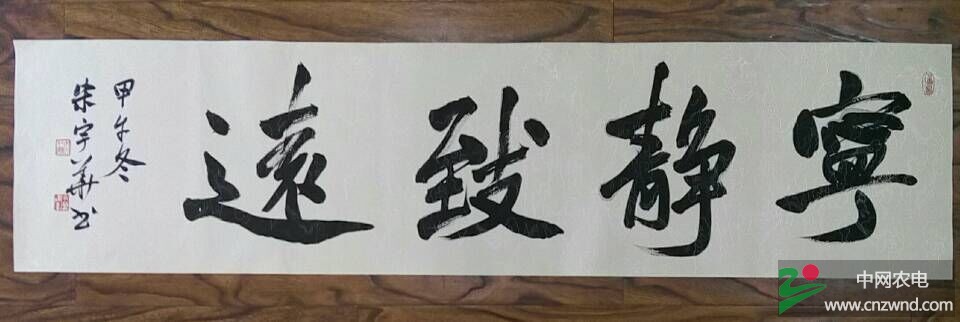 寧静致遠
甲午冬
柴宇華书
中网农电
www.cnzwnd.com